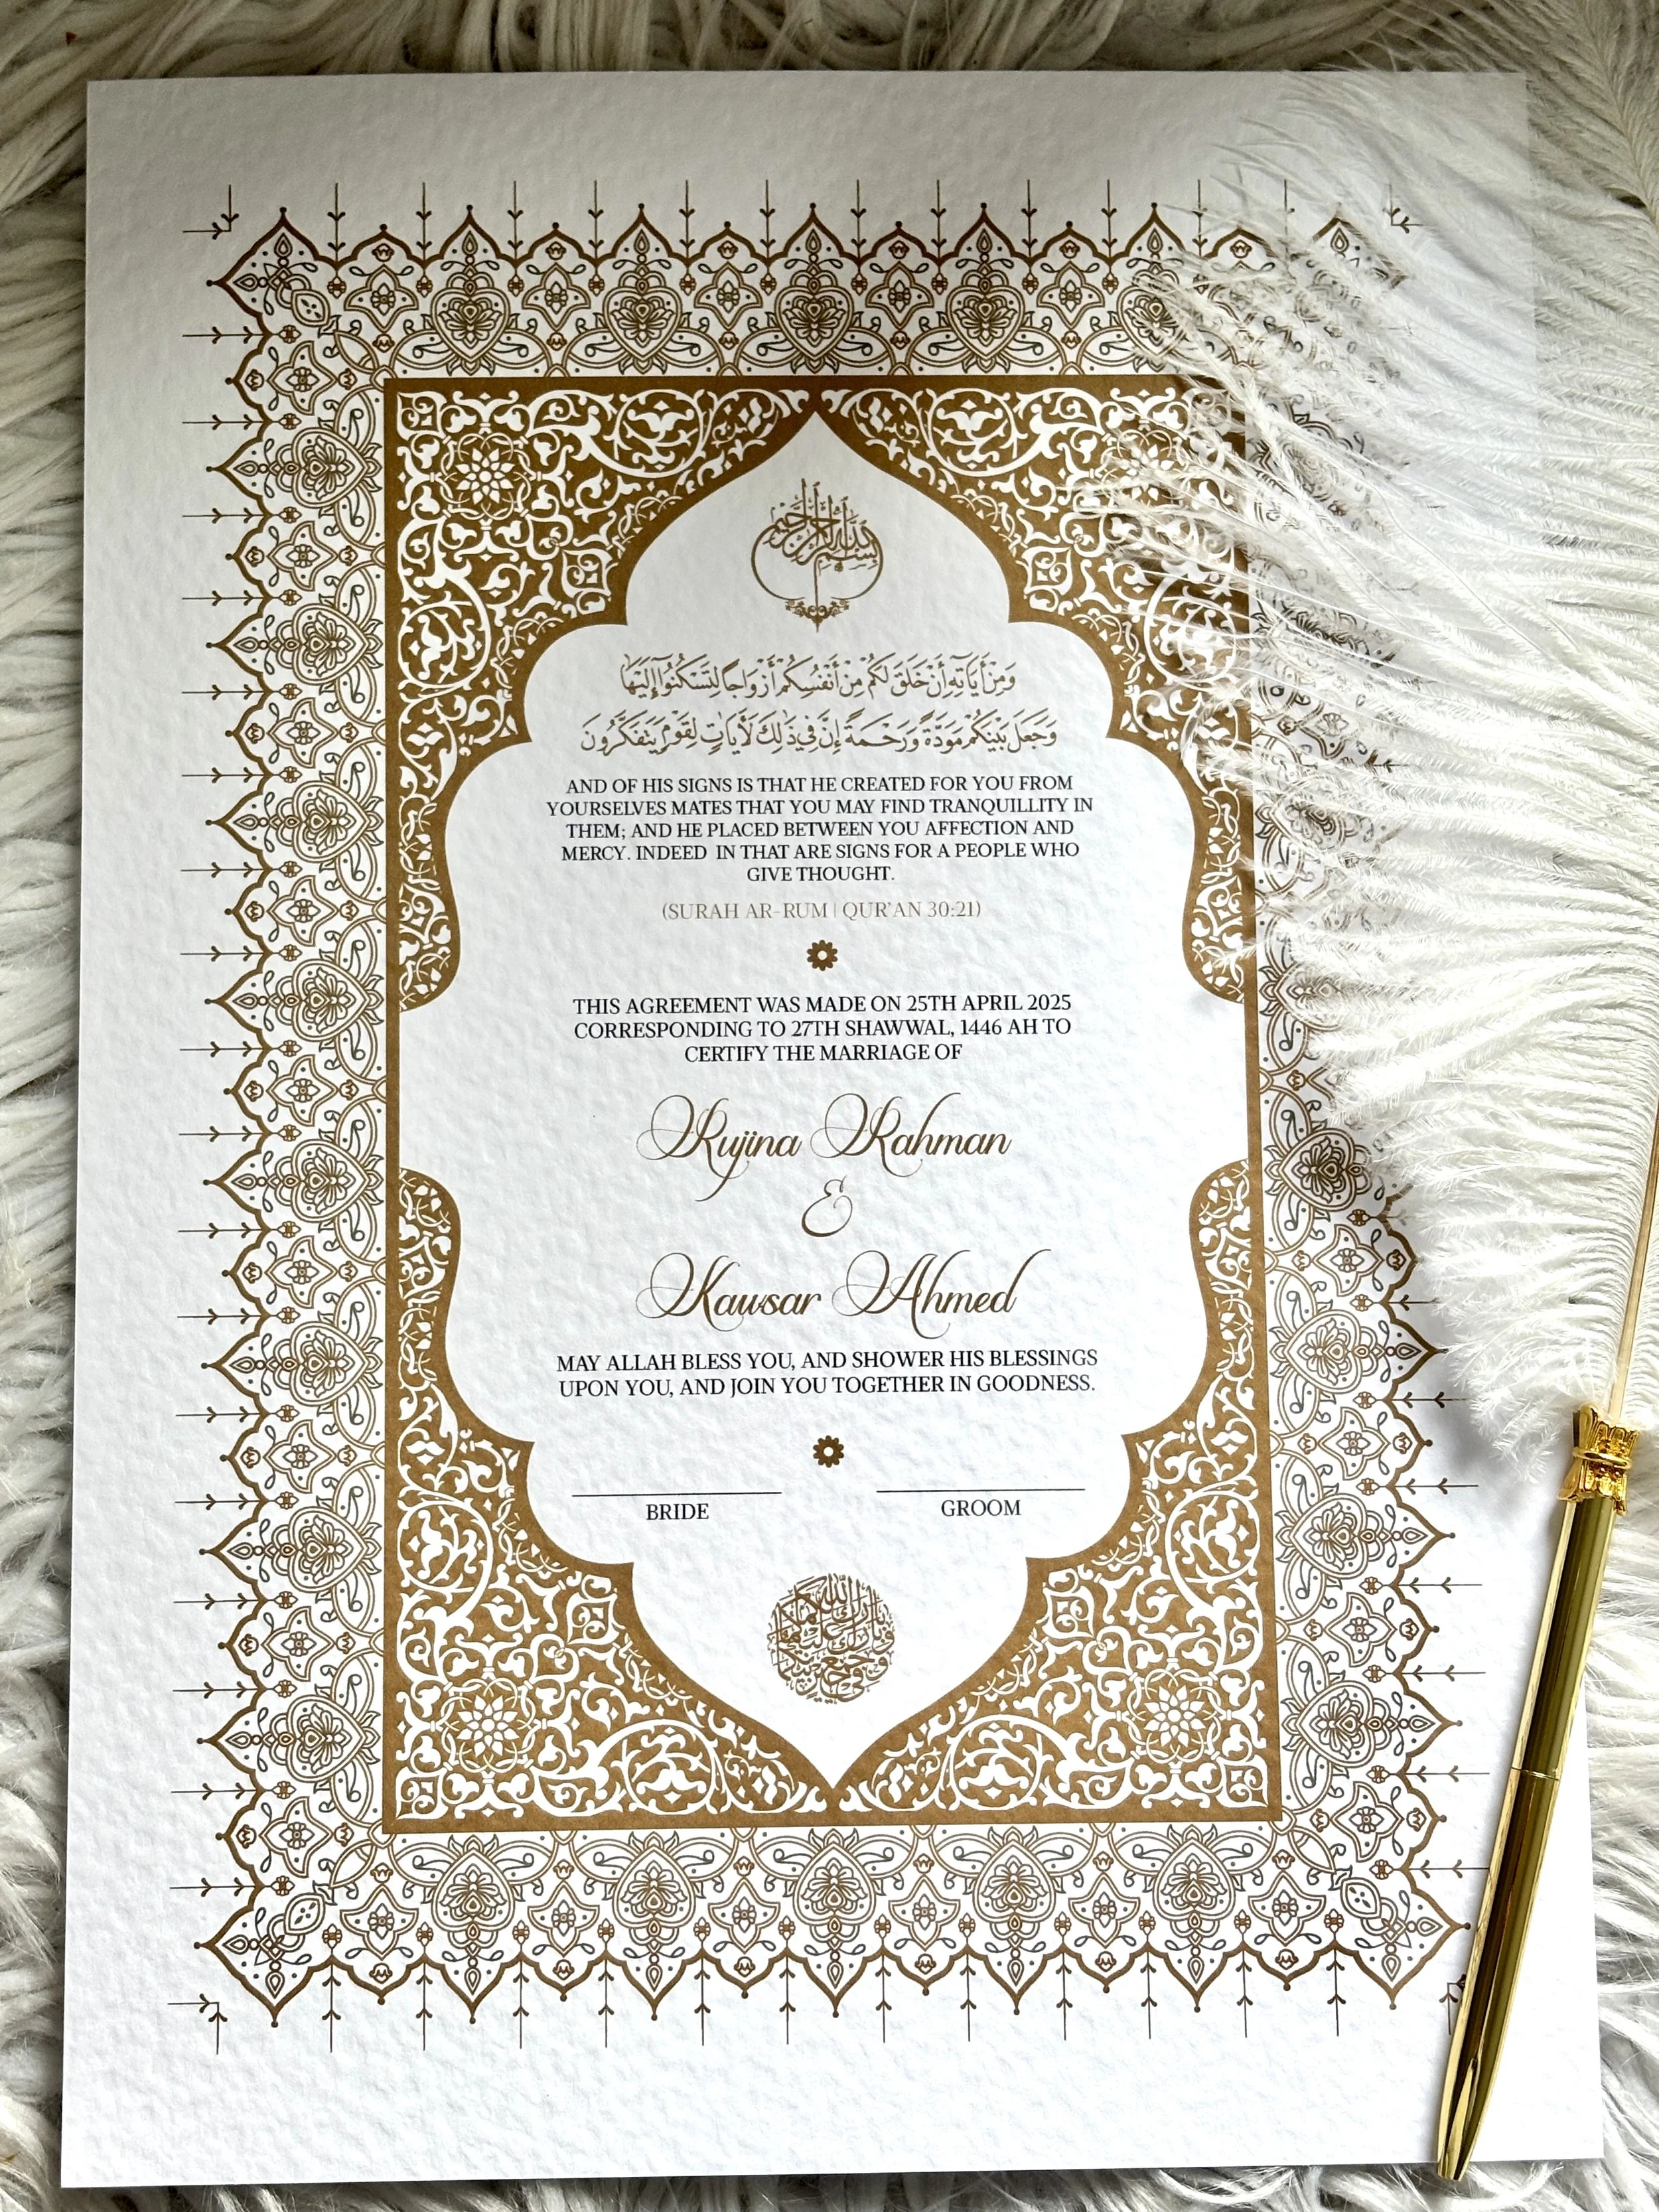 بسم الله الرحمن الرحيم
وَمِنْ أَيَاتِهِ أَنْ خَلَقَ لَكُمْ مِنْ أَنْفُسِكُمْ أَزْوَاجًا لِتَسْكُنُوا إِلَيْهَا
وَجَعَلَ بَيْنَكُمْ مَوَدَّةً وَرَحْمَةً إِنَّ فِي ذَٰلِكَ لَأَيَاتٍ لِقَوْمٍ يَتَفَكَّرُونَ
AND OF HIS SIGNS IS THAT HE CREATED FOR YOU FROM
YOURSELVES MATES THAT YOU MAY FIND TRANQUILLITY IN
THEM; AND HE PLACED BETWEEN YOU AFFECTION AND
MERCY. INDEED IN THAT ARE SIGNS FOR A PEOPLE WHO
GIVE THOUGHT.
(SURAH AR-RUM | QUR'AN 30:21)
THIS AGREEMENT WAS MADE ON 25TH APRIL 2025
CORRESPONDING TO 27TH SHAWWAL, 1446 AH TO
CERTIFY THE MARRIAGE OF
Rujina Rahman
&
Kawsar Ahmed
MAY ALLAH BLESS YOU, AND SHOWER HIS BLESSINGS
UPON YOU, AND JOIN YOU TOGETHER IN GOODNESS.
BRIDE GROOM
بارك الله لكما
وبارك عليكما
وجمع بينكما
في خير